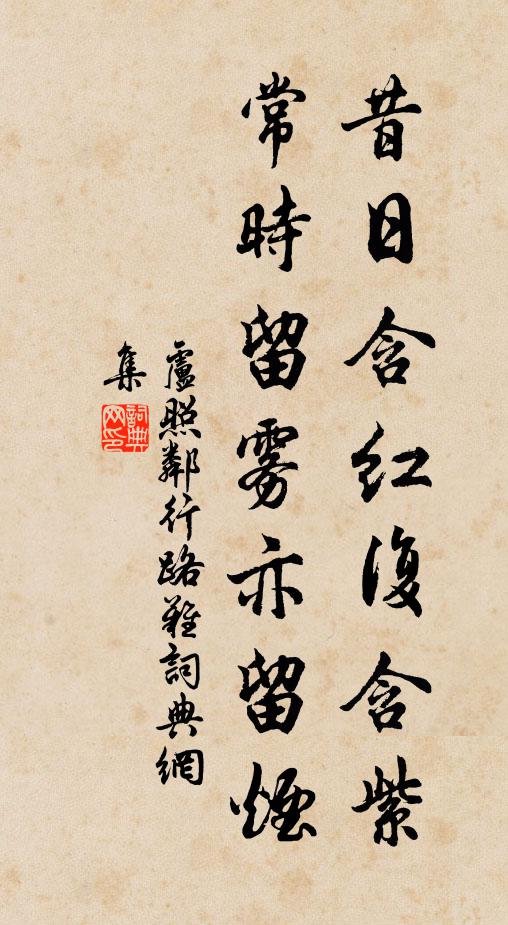 昔日含红復含紫
常時留雾亦留煙
盧照鄰行路難詞典網
集
詞典网印